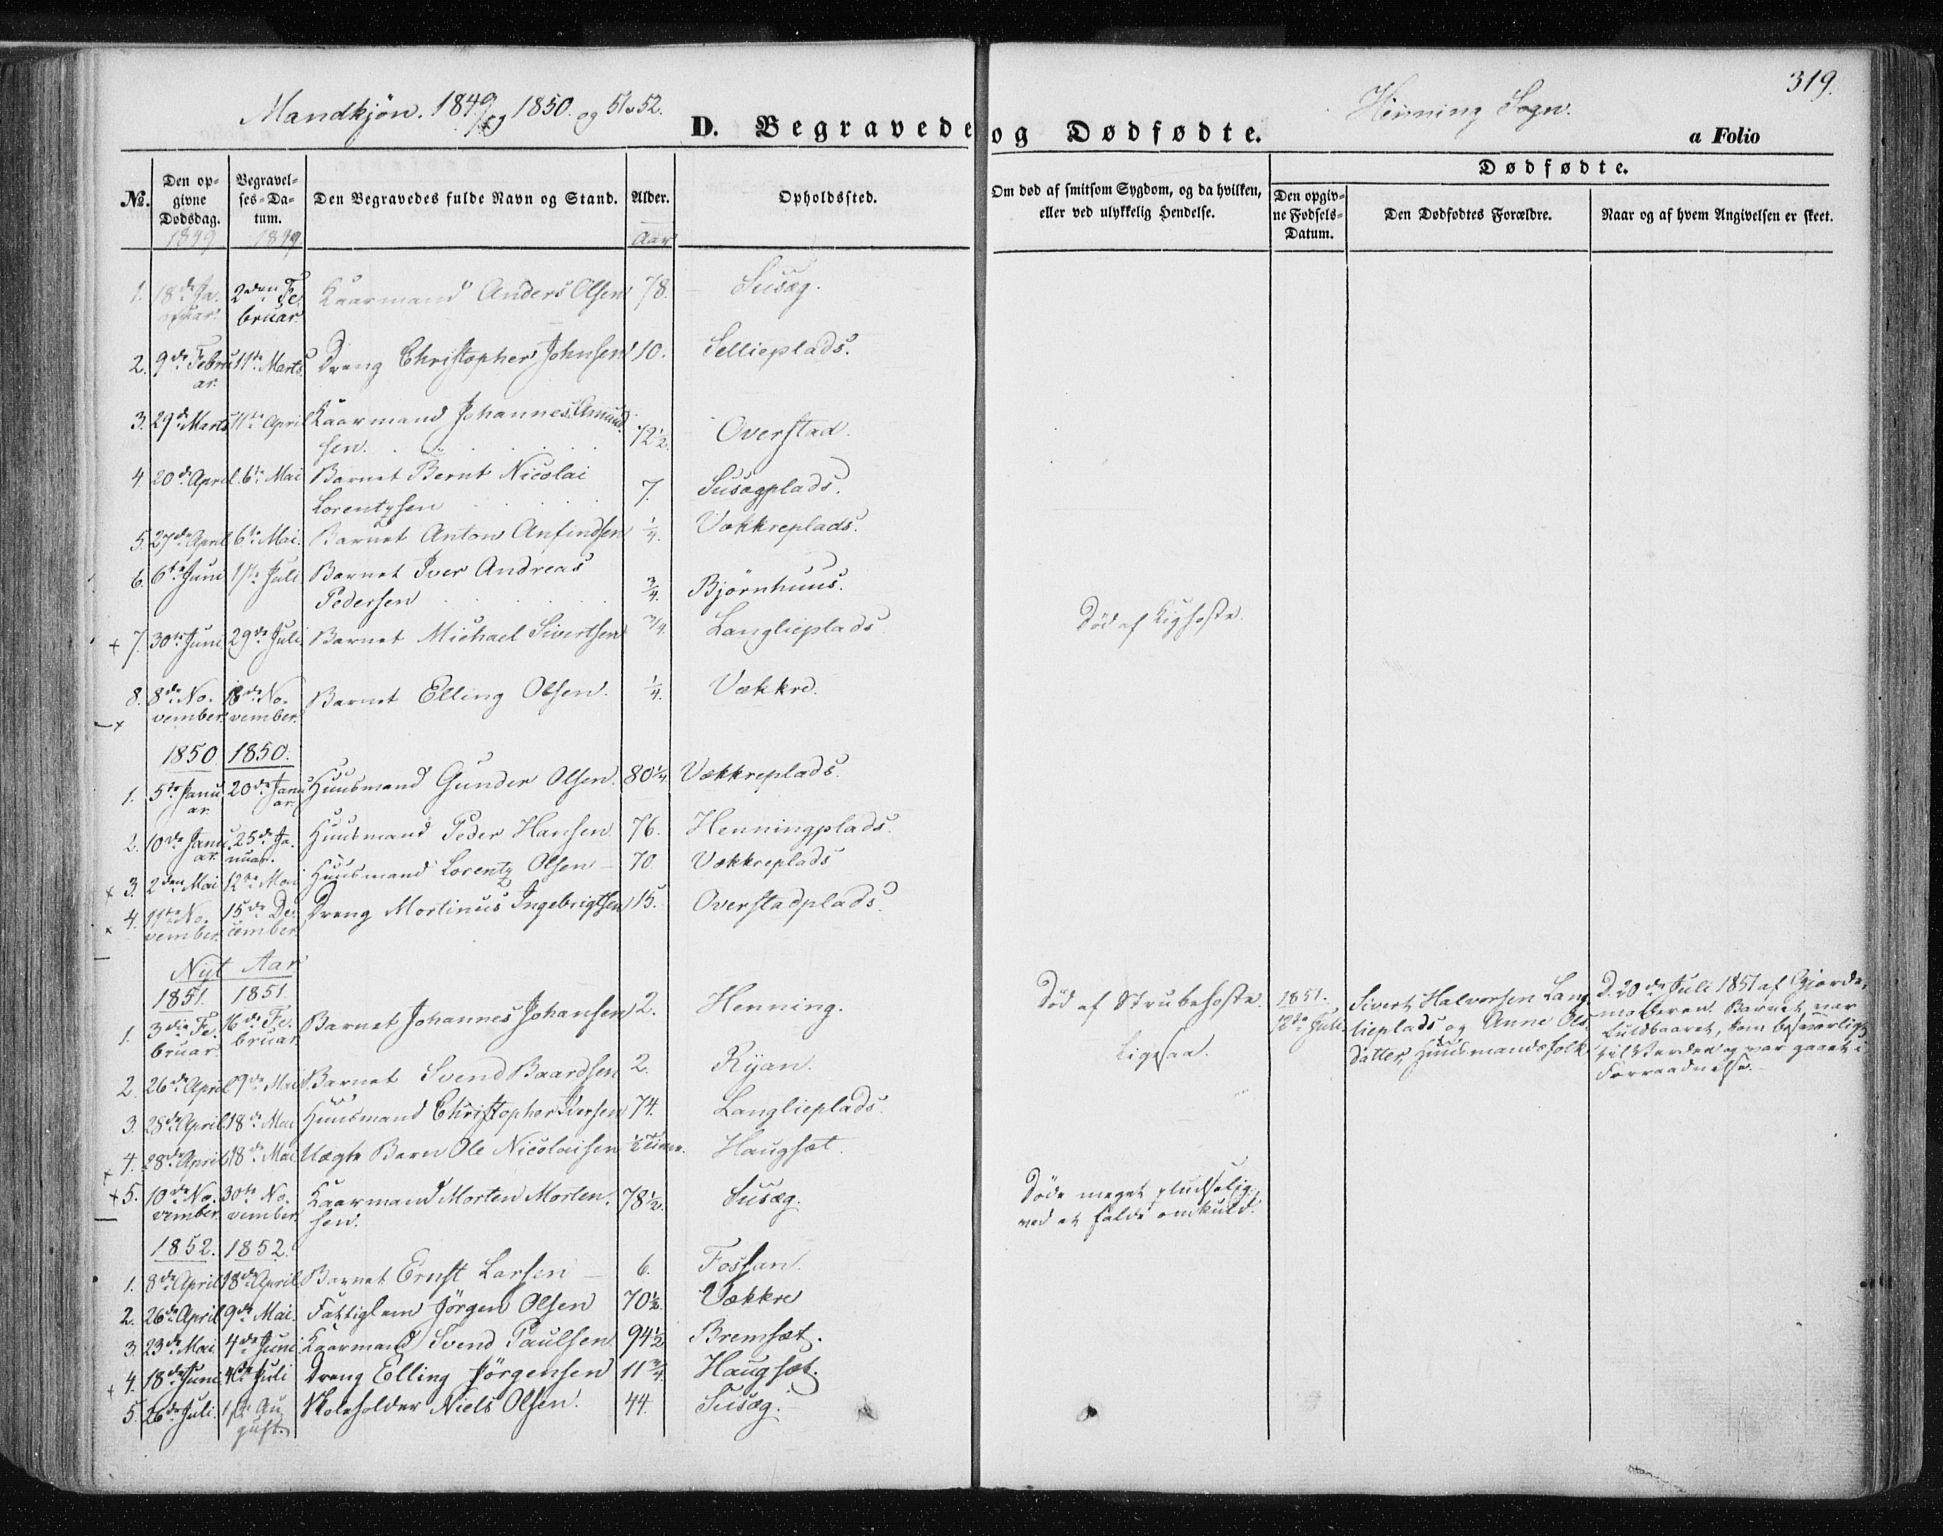 Mandkjøn. 1849 og 1850. og 51 o 52.
D. Begravede og Dødfødte.
Henning Sogn.
319.
a Folio
No.
Den opgivne Dødsdag.
Begravelses-Datum.
Den Begravedes fulde Navn og Stand.
Alder.
Opholdssted.
Om død af smitsom Sygdom, og da hvilken, eller ved ulykkelig Hendelse.
Dødfødte.
Den opgivne Fødsels-Datum.
Den Dødfødtes Forældre.
Naar og af hvem Angivelsen er skeet.
1849 1849 Aar
1. 18de Januar. 2den Februar. Kaarmand Anders Olsen 78. Susæg.
2. 9de Februar. 11te Marts. Dreng Christopher Johnsen 10. Sellieplads.
3. 29de Marts 11te April Kaarmand Johannes Amundsen. 72 1/2. Overstad.
4. 20de April. 6te Mai Barnet Bernt Nicolai Lorentzsen 7. Susægplads.
5. 27de April 6te Mai. Barnet Anton Anfindsen 1/4. Vækkreplads.
6. 6te Juni 1ste Juli. Barnet Iver Andreas Pedersen 3/4. Bjørnhuus.
+ 7. 30te Juni 29de Juli. Barnet Michael Sivertsen 3/4. Langlieplads. Død af Kighoste.
8. 8de November. 18de November. Barnet Elling Olsen. 1/4. Vækkre.
1850 1850.
1. 5te Januar. 20de Januar. Huusmand Gunder Olsen. 80 1/4. Vækkreplads.
2. 10de Januar. 25de Januar. Huusmand Peder Hansen. 76. Henningplads.
x 3. 2den Mai 12te Mai Huusmand Lorentz Olsen 70 Vækkreplads
x 4. 11te November. 15de December. Dreng Mortinus Ingebrigtsen 15. Overstadplads.
Nyt Aar
1851. 1851
1. 3die Februar. 16de Februar Barnet Johannes Johansen 2. Henning. Død af Strubehoste.
1851. 12te Juli. Sivert Halvorsen Langlieplads og Anne Olsdatter, Huusmandsfolk
D. 20de Juli 1851 af Gjordemoderen. Barnet var fuldbaaret, kom besværligt til Verden og var gaaet i Forraadnelse.
2. 26de April 9de Mai Barnet Svend Baardsen 2. Ryan. Ligesaa.
3. 28de April 18de Mai Huusmand Christopher Iversen 74. Langlieplads.
4. 28de April 18de Mai. Uægte Barn Ole Nicolaisen 1/2 Time. Haugsæt.
+ 5. 10de November. 30te November. Kaarmand Morten Mortensen. 78 1/2. Susæg. Døde meget pludselig ved at falde omkuld.
1852. 1852.
1. 8de April 18de April Barnet Ernst Larsen 6. Fossan.
2. 26de April 9de Mai. Fattiglem Jørgen Olsen 70 1/2. Vækkre
3. 23de Mai 4de Juni Kaarmand Svend Paulsen 94 1/2 Bremsæt.
+ 4. 18de Juni 4de Juli Dreng Elling Jørgensen 11 3/4. Haugsæt.
5. 26de Juli. 1ste August. Skoleholder Niels Olsen. 44. Susæg.